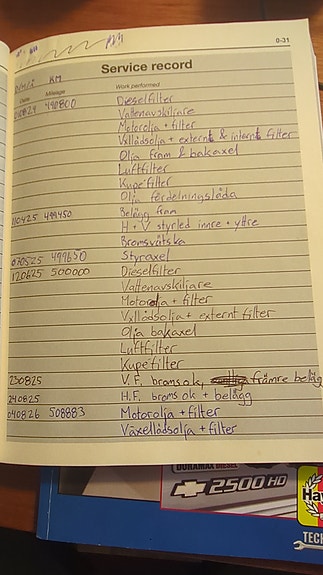 0-31
Service record
DDMMÅÅ KM
Date Mileage Work performed
490800 Dieselfilter
Vattenavskiljare
Motorolja + filter
Vxllådsolja + externt & internt filter
Olja fram & bakaxel
Luftfilter
Kupefilter
Olja fördelningslåda
110425 499450 Belägg fram
H + V styrled innre + yttre
Bromsvätska
070525 499650 Styraxel
120625 500000 Dieselfilter
Vattenavskiljare
Motorolja + filter
Vxllådsolja + externt filter
Olja bakaxel
Luftfilter
Kupefilter
230825 V.F. bromsok, främre belägg
240825 H.F. broms ok + belägg
040826 508883 Motorolja + filter
Växellådsolja + filter
DURAMAX DIESEL
2500 HD
Hay
TECH